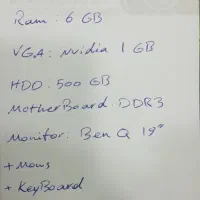 Ram: 6 GB
VGA: Nvidia 1 GB
HDD: 500 GB
MotherBoard DDR3
Monitor: Ben Q 19"
+ Mows
+ KeyBoard